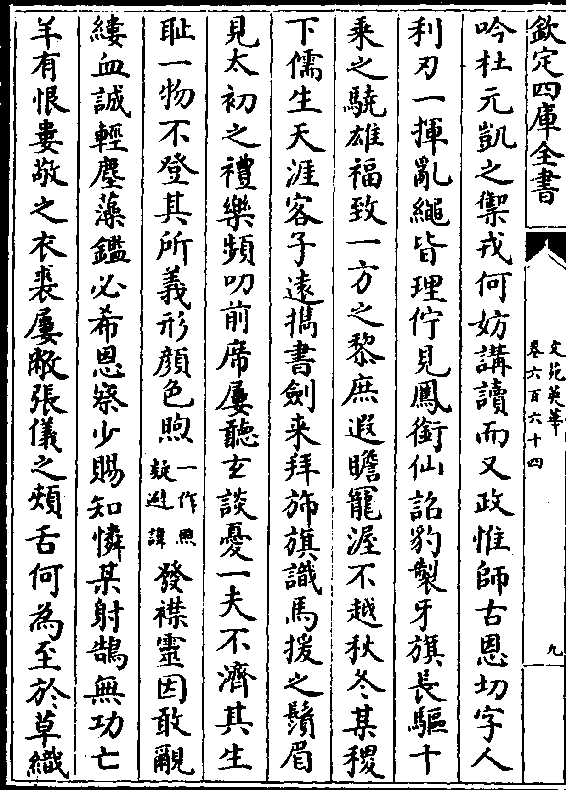 欽定四庫全書
文苑英華
卷六百六十四
九
吟杜元凱之禦戎何妨講讀而又政惟師古恩切字人
利刃一揮亂繩皆理佇見鳳銜仙詔豹製牙旗長驅十
乘之驍雄福致一方之黎庶遐瞻寵渥不越秋冬某稷
下儒生天涯客子遠攜書劍来拜斾旗識馬援之鬚眉
見太初之禮樂頻叨前席屢聽玄談憂一夫不濟其生
恥一物不登其所義形顔色煦一作照疑避諱發襟靈因敢覼
縷血誠輕塵藻鑑必希恩察少賜知憐某射鵠無功亡
羊有恨婁敬之衣裘屢敝張儀之頰舌何為至於草織